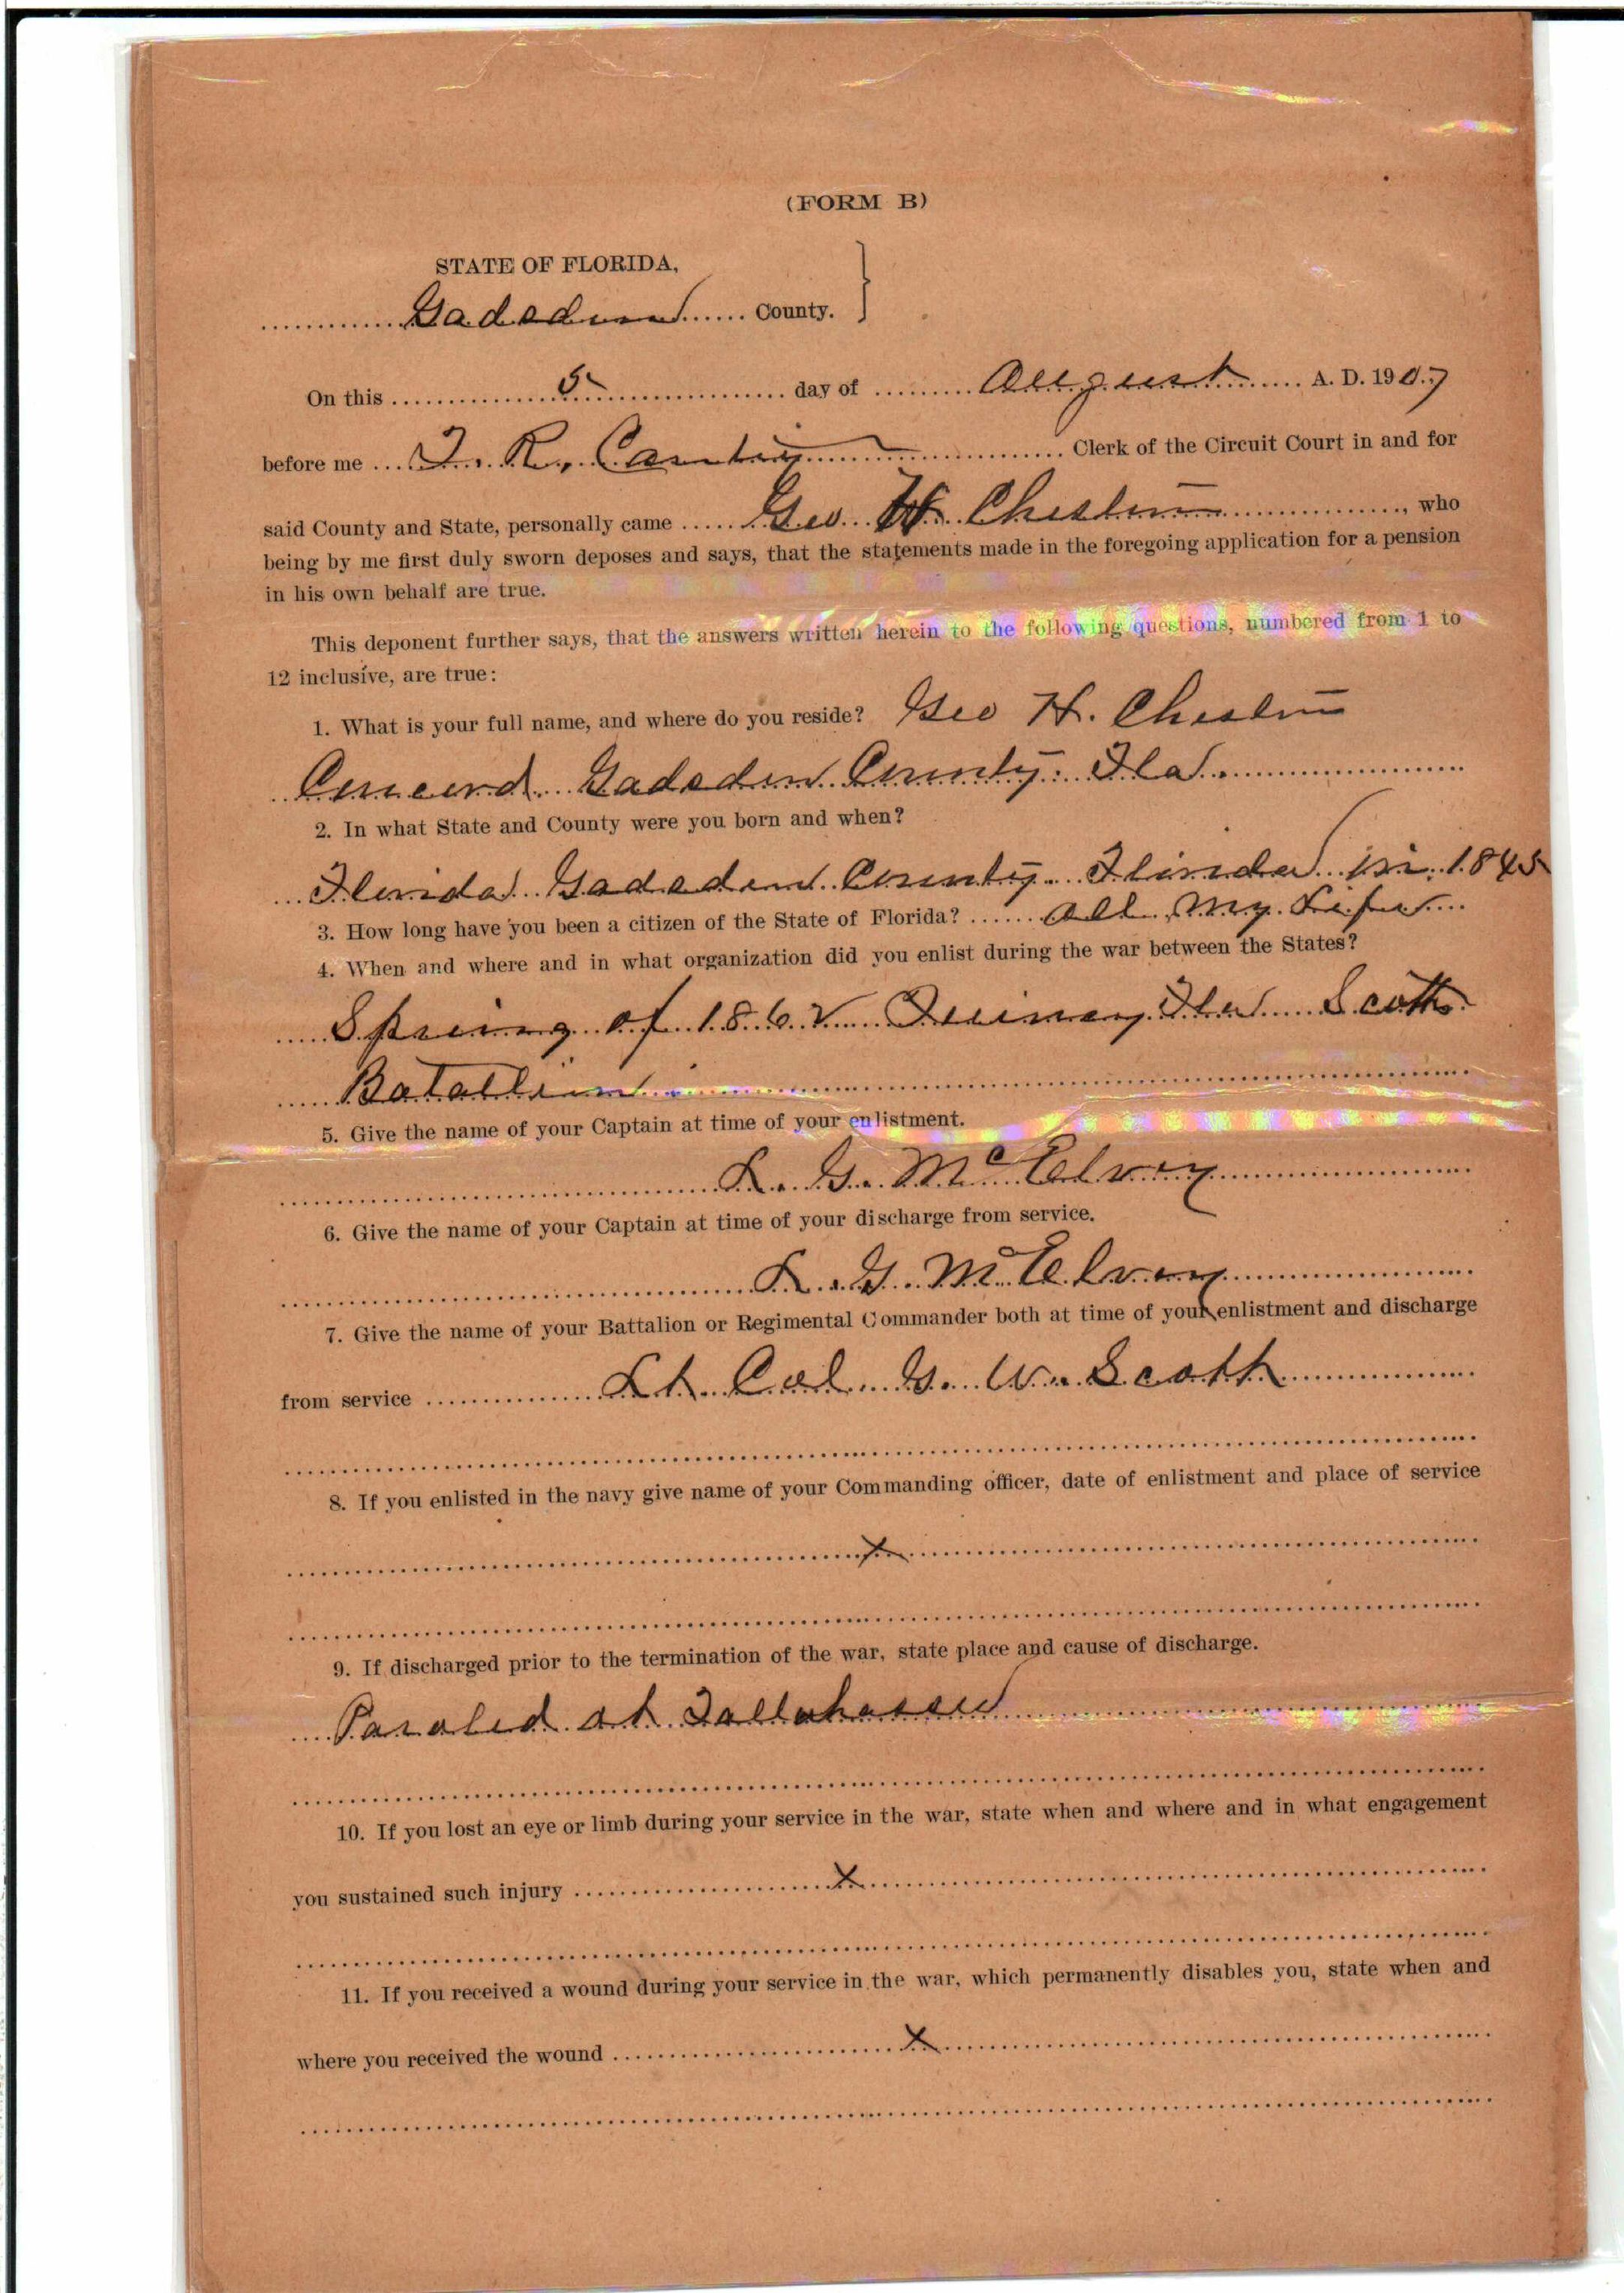 (FORM B)
STATE OF FLORIDA,
Gadsden County.
On this 5 day of August A. D. 1907
before me Clerk of the Circuit Court in and for
said County and State, personally came Geo H. , who
being by me first duly sworn deposes and says, that the statements made in the foregoing application for a pension
in his own behalf are true.
This deponent further says, that the answers written herein to the following questions, numbered from 1 to
12 inclusive, are true:
1. What is your full name, and where do you reside? Geo H.
Concord Gadsden County Fla
2. In what State and County were you born and when?
Florida Gadsden County Florida in 1845
3. How long have you been a citizen of the State of Florida? All My Life
4. When and where and in what organization did you enlist during the war between the States?
Spring of 1862 Quincy Fla Scotts
Batallion
5. Give the name of your Captain at time of your enlistment.
L. G. McElvey
6. Give the name of your Captain at time of your discharge from service.
L. G. McElvey
7. Give the name of your Battalion or Regimental Commander both at time of your enlistment and discharge
from service Lt. Col. G. W. Scott
8. If you enlisted in the navy give name of your Commanding officer, date of enlistment and place of service
X
9. If discharged prior to the termination of the war, state place and cause of discharge.
Paroled at Tallahassee
10. If you lost an eye or limb during your service in the war, state when and where and in what engagement
you sustained such injury X
11. If you received a wound during your service in the war, which permanently disables you, state when and
where you received the wound X